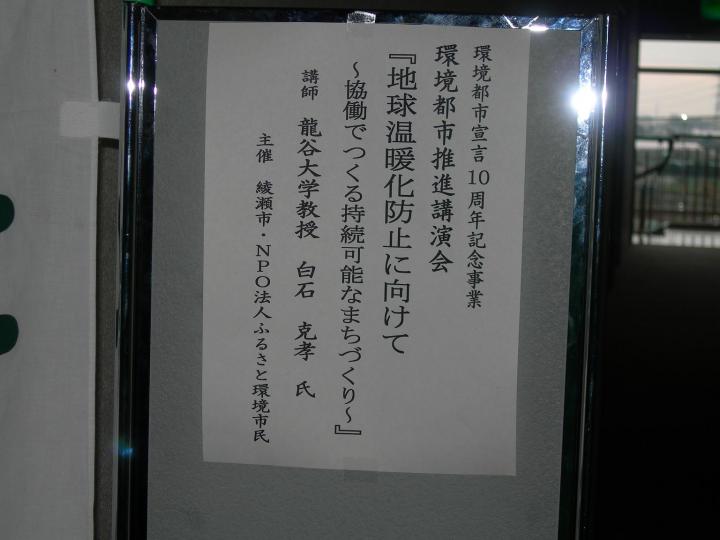 環境都市宣言10周年記念事業
環境都市推進講演会
『地球温暖化防止に向けて
～協働でつくる持続可能なまちづくり～』
講師 龍谷大学教授 白石 克孝 氏
主催 綾瀬市・NPO法人ふるさと環境市民